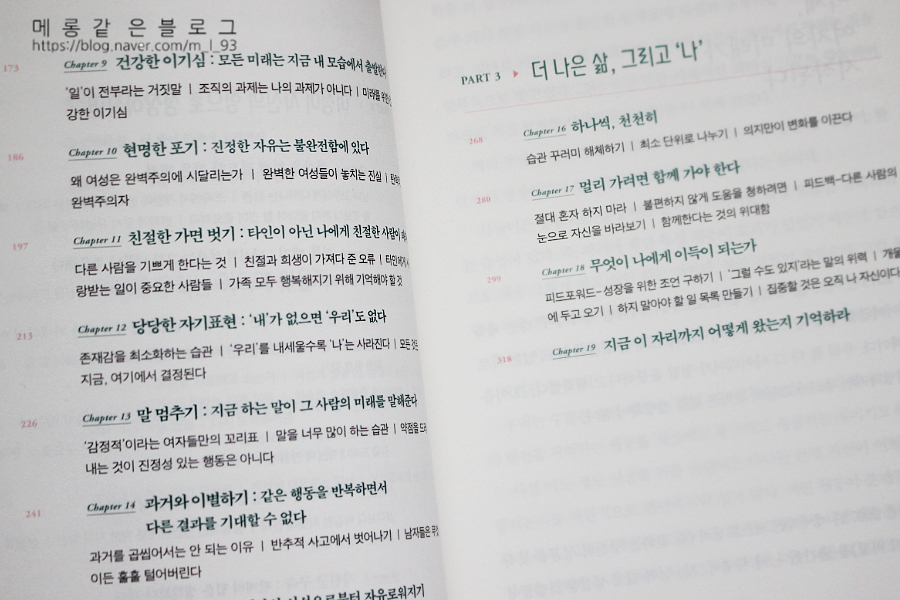 메롱같은블로그
https://blog.naver.com/m_l_93
173 Chapter 9 건강한 이기심 : 모든 미래는 지금 내 모습에서
‘일’이 전부라는 거짓말 | 조직의 과제는 나의 과제가 아니다 |
강한 이기심
186 Chapter 10 현명한 포기 : 진정한 자유는 불완전함에 있다
왜 여성은 완벽주의에 시달리는가 | 완벽한 여성들이 놓치는 진실 |
완벽주의자
197 Chapter 11 친절한 가면 벗기 : 타인이 아닌 나에게 친절한 사람이
다른 사람을 기쁘게 한다는 것 | 친절과 희생이 가져다 준 오류 |
랑받는 일이 중요한 사람들 | 가족 모두 행복해지기 위해 기억해야 할 것
213 Chapter 12 당당한 자기표현 : ‘내’가 없으면 ‘우리’도 없다
존재감을 최소화하는 습관 | ‘우리’를 내세울수록 ‘나’는 사라진다 | 모든
지금, 여기에서 결정된다
226 Chapter 13 말 멈추기 : 지금 하는 말이 그 사람의 미래를 말해준다
‘감정적’이라는 여자들만의 꼬리표 | 말을 너무 많이 하는 습관 | 약점을
내는 것이 진정성 있는 행동은 아니다
241 Chapter 14 과거와 이별하기 : 같은 행동을 반복하면서
다른 결과를 기대할 수 없다
과거를 곱씹어서는 안 되는 이유 | 반추적 사고에서 벗어나기 | 남자들은
이든 훌훌 털어버린다
으로부터 자유로워지기
PART 3 ▶ 더 나은 삶, 그리고 ‘나’
268 Chapter 16 하나씩, 천천히
습관 꾸러미 해체하기 | 최소 단위로 나누기 | 의지만이 변화를 이끈다
280 Chapter 17 멀리 가려면 함께 가야 한다
절대 혼자 하지 마라 | 불편하지 않게 도움을 청하려면 | 피드백-다른 사람의
눈으로 자신을 바라보기 | 함께한다는 것의 위대함
299 Chapter 18 무엇이 나에게 이득이 되는가
피드포워드-성장을 위한 조언 구하기 | ‘그럴 수도 있지’라는 말의 위력 |
에 두고 오기 | 하지 말아야 할 일 목록 만들기 | 집중할 것은 오직 나 자신이다
318 Chapter 19 지금 이 자리까지 어떻게 왔는지 기억하라